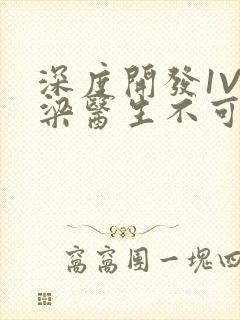 深度開發1V
梁醫生不可
窩窩團一塊四